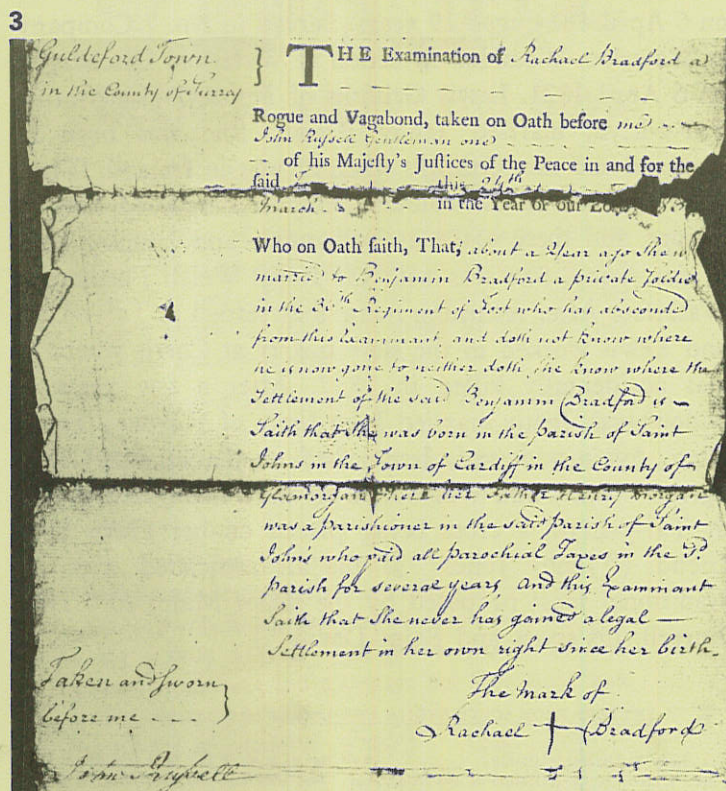 3
Guldeford Town
in the County of Surrey
THE Examination of Rachael Bradford a
Rogue and Vagabond, taken on Oath before me
John Russell Gentleman one
of his Majesty's Justices of the Peace in and for the
said this 24th
March in the Year of our
Who on Oath saith, That, about a Year ago She
married to Benjamin Bradford a private Soldier
in the Regiment of Foot who has absconded
from this Examinant, and doth not know where
he is now gone to neither doth She know where the
Settlement of the said Benjamin Bradford is
Saith that She was born in the Parish of Saint
Johns in the Town of Cardiff in the County of
Glamorgan where her Father Henry Morgan
was a Parishioner in the said Parish of Saint
John's who paid all Parochial Taxes in the Sd.
Parish for several years, And this Examinant
Saith that She never has gained a legal
Settlement in her own right since her birth.
Taken and Sworn
before me
The Mark of
Rachael Bradford
John Russell